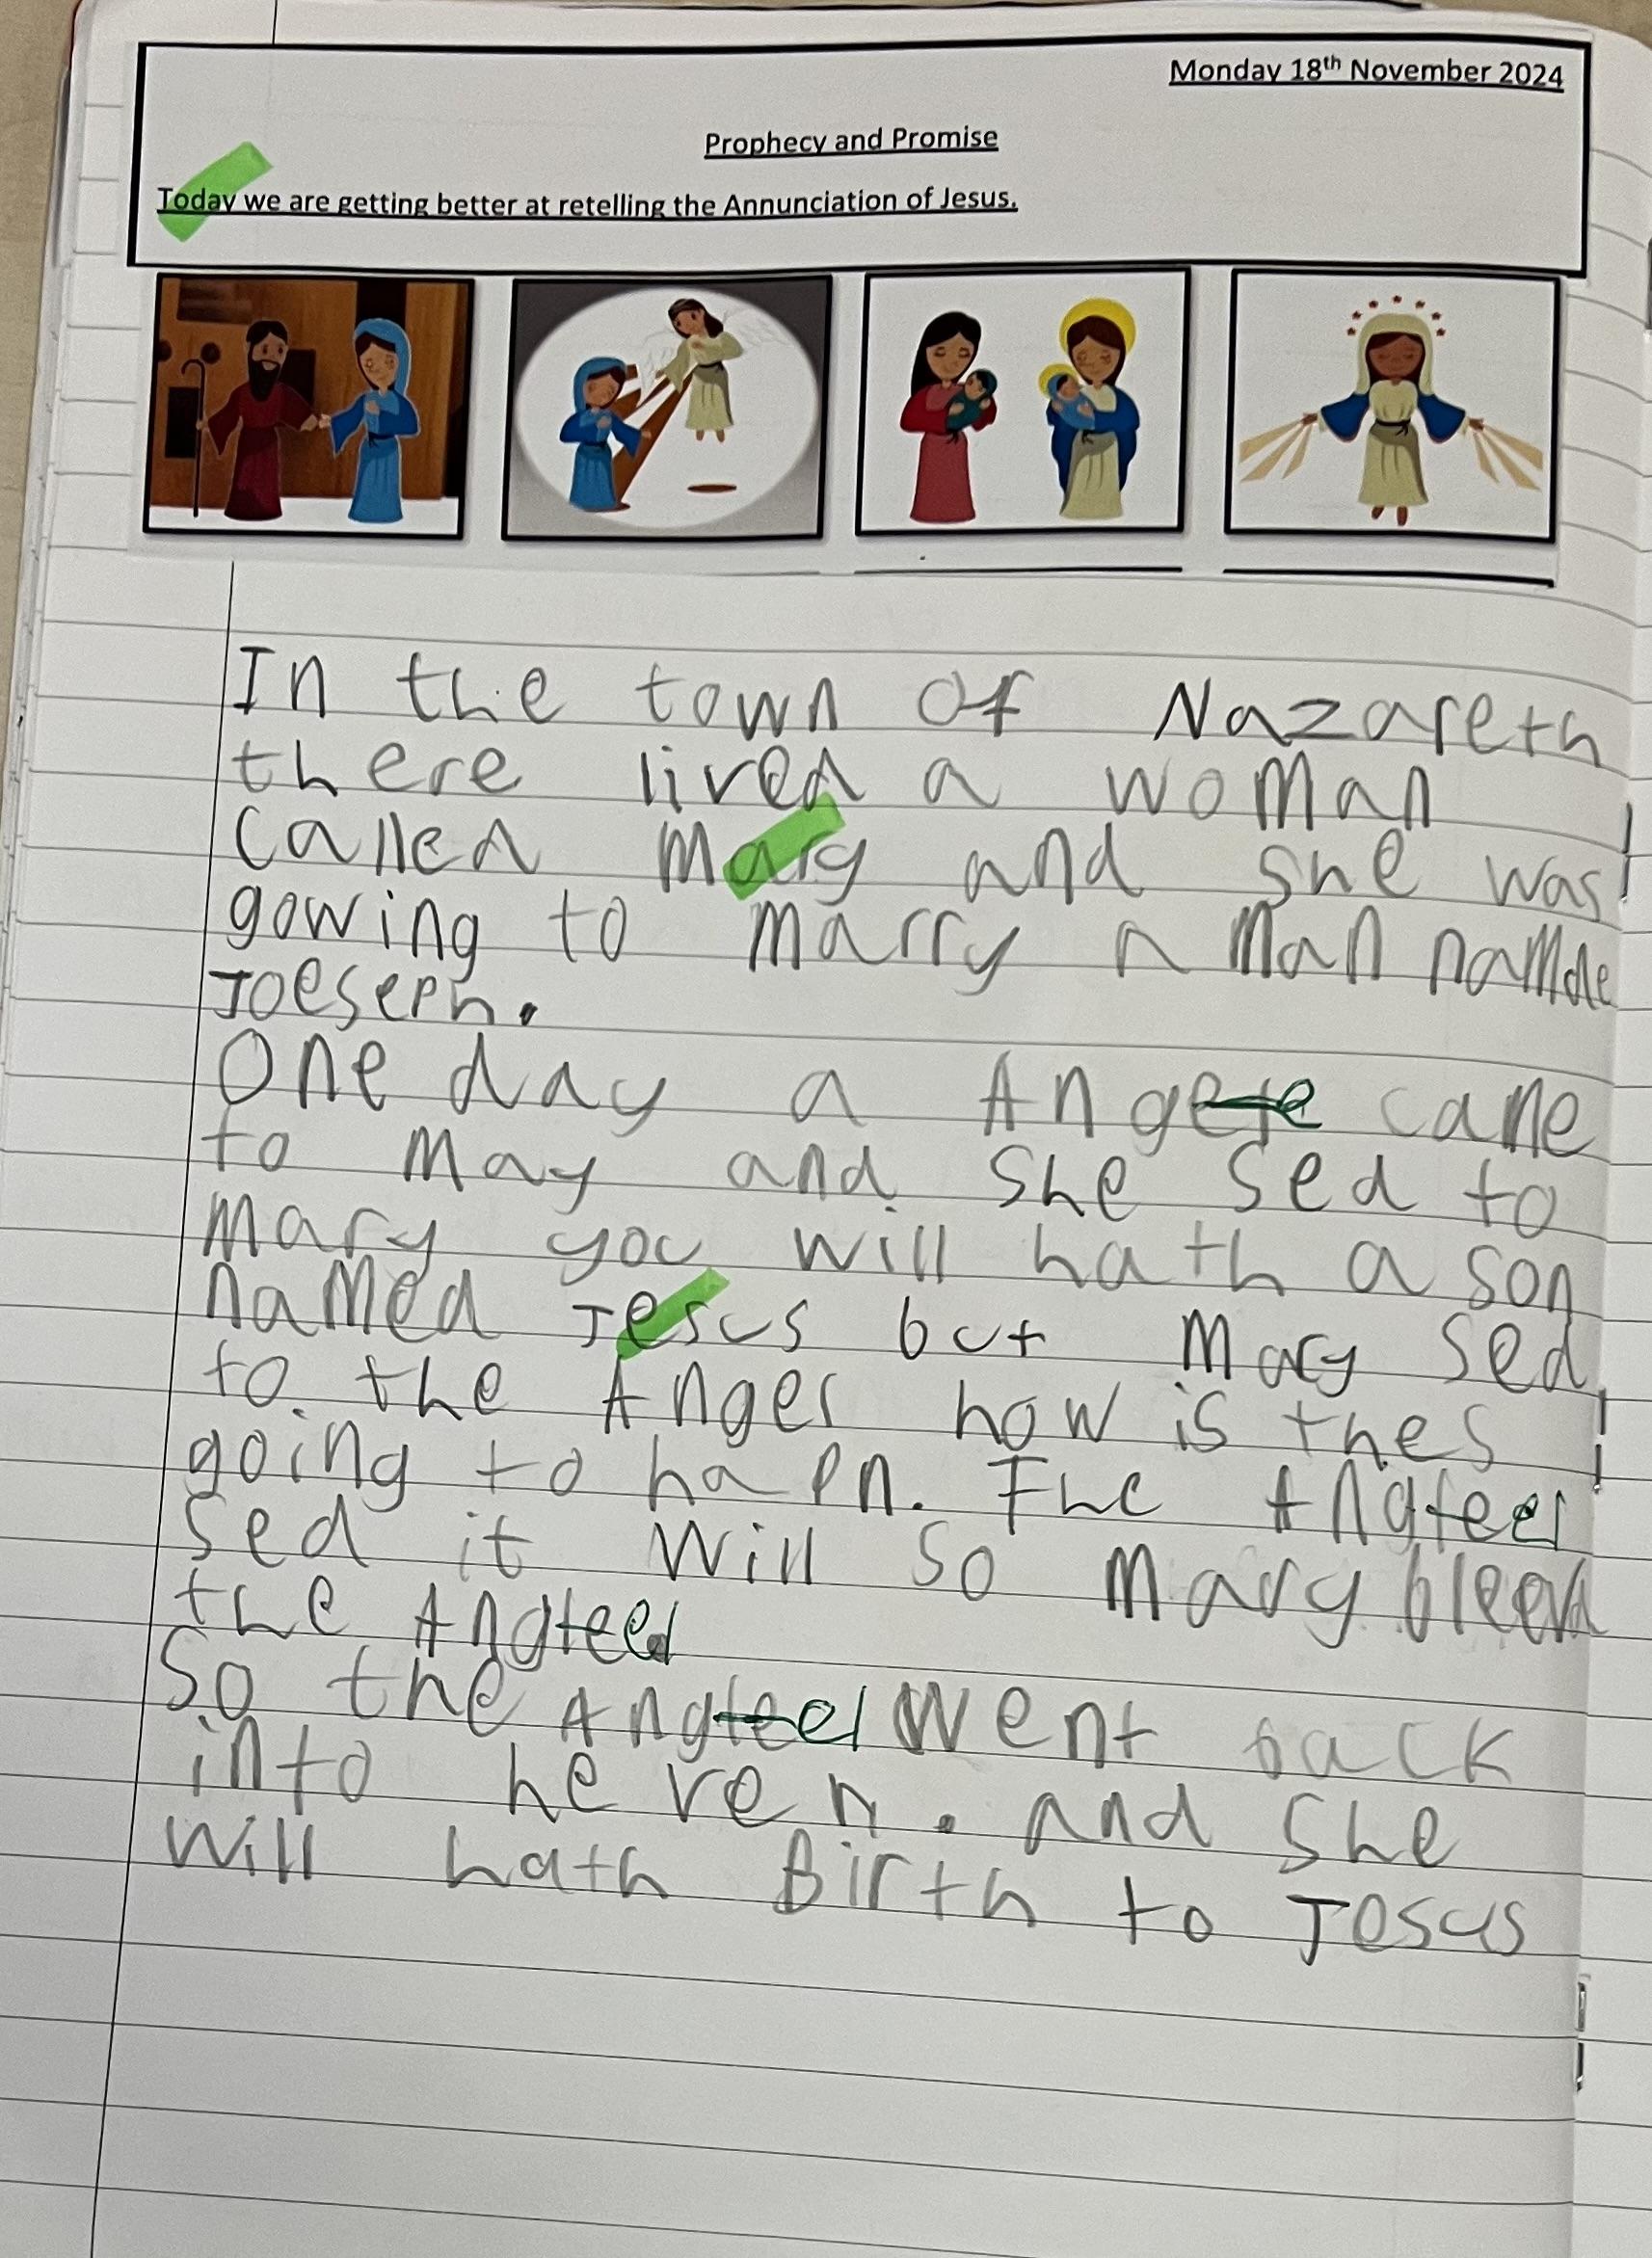 Monday 18th November 2024
Prophecy and Promise
Today we are getting better at retelling the Annunciation of Jesus.
In the town of Nazareth
there lived a woman
called Mary and she was
gowing to marry a man namde
Joeseph.
One day a came
to may and she sed to
mary you will hath a son
named Jesus but Mary sed
to the Anger how is thes
going to hapn. The
sed it will so Mary
the
So the went back
into heven. and she
will hath Birth to Jesus